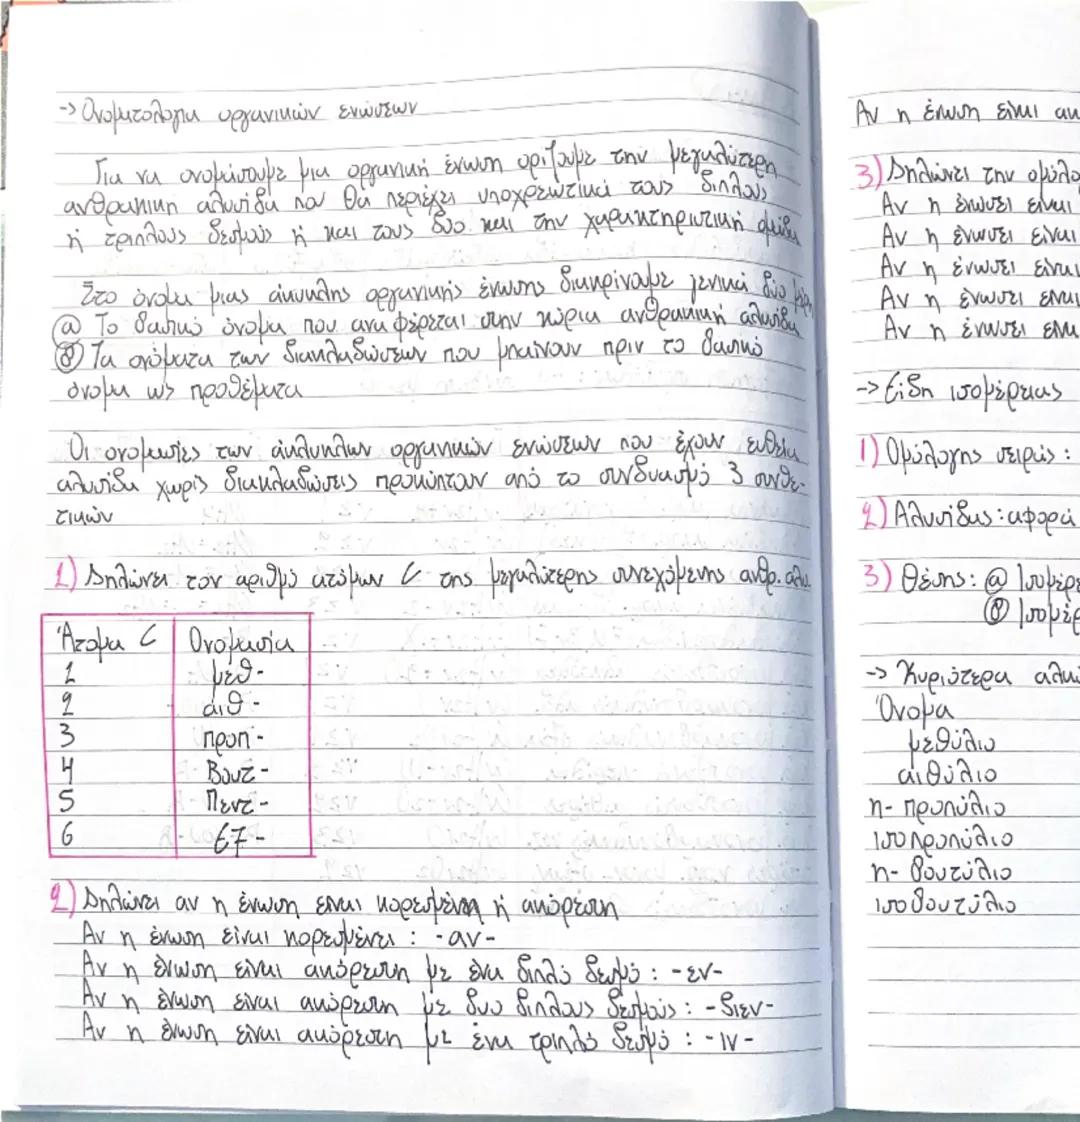 -> Ονοματολογια οργανικών ενώσεων
Για να ονομάσουμε μια οργανική ένωση οριζουμε την μεγαλύτερη
ανθρακικη αλυσίδα που θα περιέχει υποχρεωτικά τους διπλους
ή τριπλους δεσμούς ή και τους δυο και την χαρακτηριστική ομάδα
Στο όνομα μιας άκυκλης οργανικής ένωσης διακρίνουμε γενικά δύο μέρη
α Το βασικό όνομα που αναφέρεται στην κύρια ανθρακική αλυσίδα
β Τα ονόματα των διακλαδώσεων που μπαίνουν πριν το βασικό
όνομα ως προθέματα
Οι ονομασίες των άκυκλων οργανικών ενώσεων που έχουν ευθεία
αλυσίδα χωρίς διακλαδώσεις προκύπτουν από το συνδυασμό 3 συνθε-
τικών
1) Δηλώνει τον αριθμό ατόμων C της μεγαλύτερης συνεχόμενης ανθρ. αλυ.
Άτομα C Ονομασία
1 μεθ-
2 αιθ-
3 προπ-
4 Βουτ-
5 Πεντ-
6 εξ-
2) Δηλώνει αν η ένωση είναι κορεσμένη ή ακόρεστη
Αν η ένωση είναι κορεσμένη : -αν-
Αν η ένωση είναι ακόρεστη με ένα διπλό δεσμό : -εν-
Αν η ένωση είναι ακόρεστη με δυο διπλους δεσμούς : -διεν-
Αν η ένωση είναι ακόρεστη με ένα τριπλό δεσμό : -ιν-
Αν η ένωση είναι ακ
3) Δηλώνει την ομόλο
Αν η ένωσει είναι
Αν η ένωσει είναι
Αν η ένωσει είναι
Αν η ένωσει είναι
Αν η ένωσει είναι
-> Είδη ισομέρειας
1) Ομόλογης σειράς :
2) Αλυσίδας : αφορά
3) Θέσης : α Ισομέρε
β Ισομέρ
-> Κυριότερα αλκύ
Όνομα
μεθύλιο
αιθύλιο
n- προπύλιο
ισοπροπύλιο
n- βουτύλιο
ισοβουτύλιο